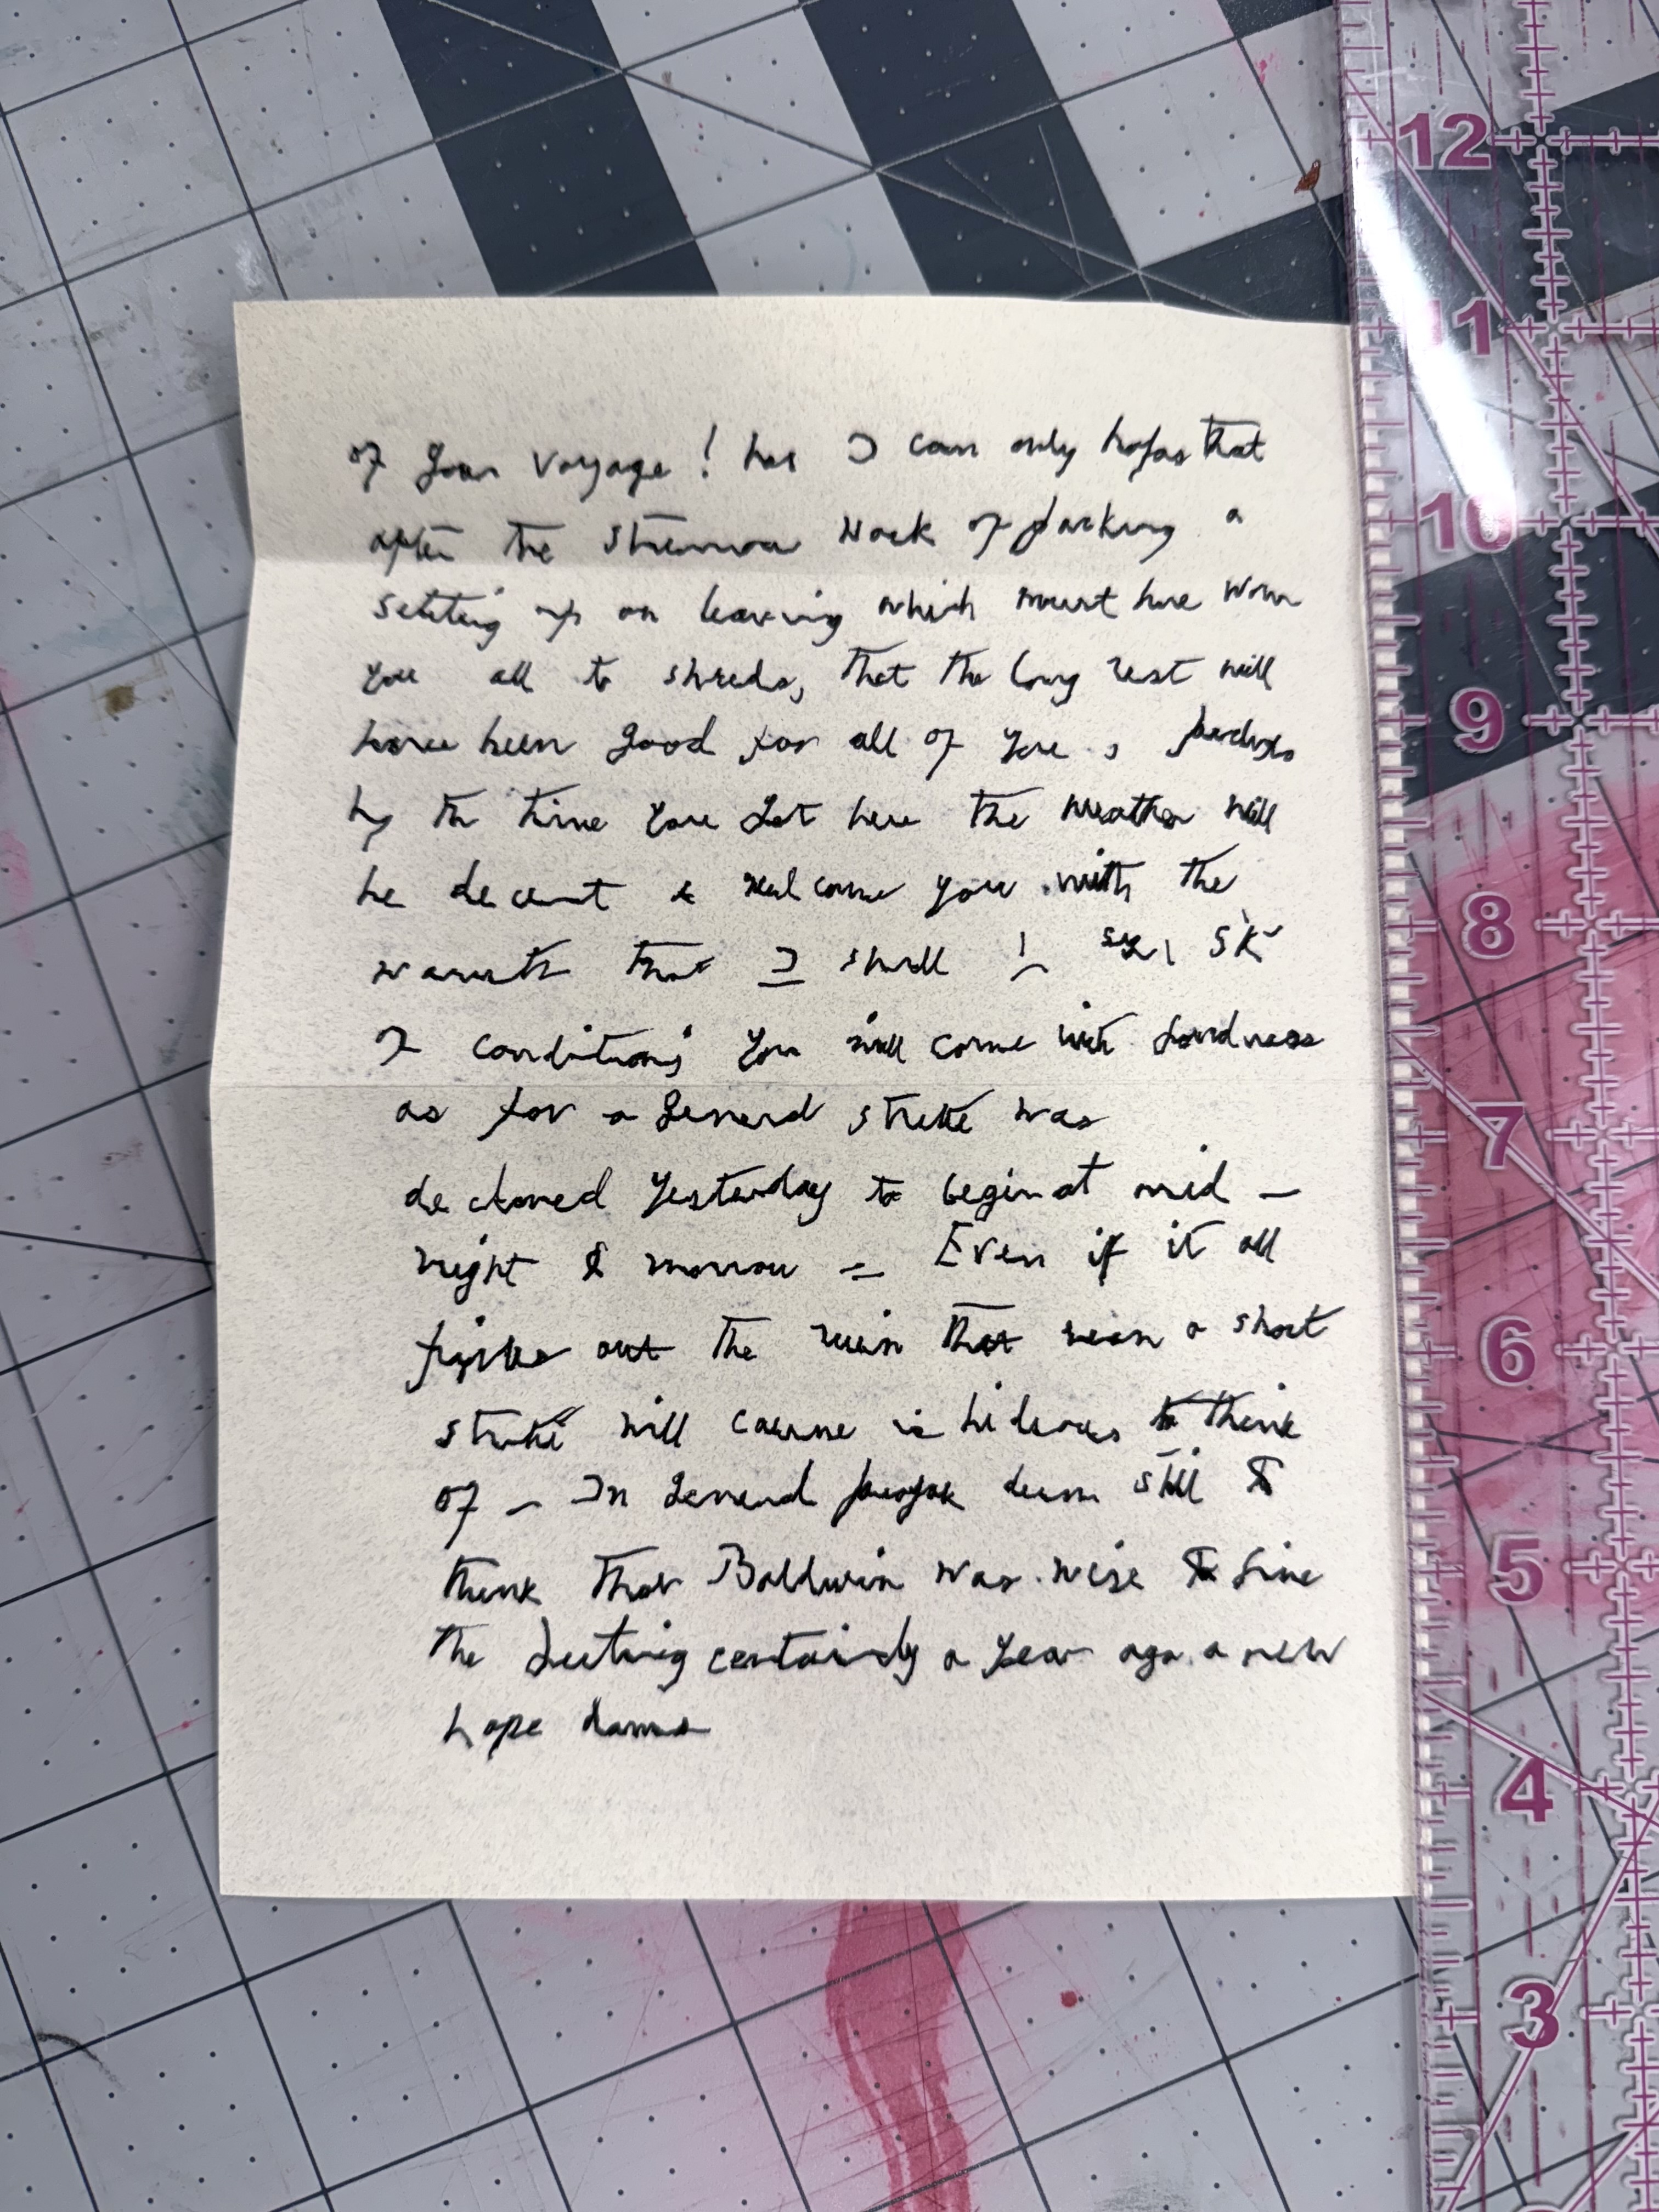 of your voyage! but I can only hope that
after the strenuous work of packing &
settling up on leaving which must have worn
you all to shreds, that the long rest will
have been good for all of you & perhaps
by the time you get here the weather will
be decent & welcome you with the
warmth that I shall!
conditions you will come into Goodness
as for a General strike was
declared yesterday to begin at mid-
night tomorrow = Even if it all
fizzles out the ruin that even a short
strike will cause is hideous to think
of - In General people seem still to
think that Baldwin was wise to give
the certainly a year ago a new
hope dawned
12
11
10
9
8
7
6
5
4
3